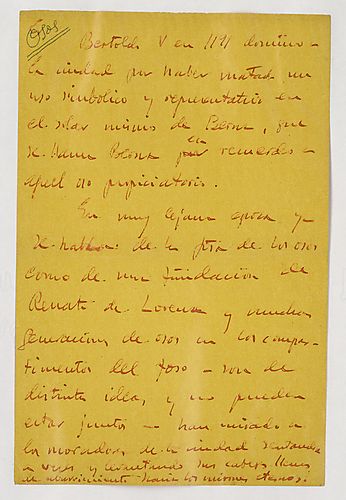 Osos
Bertoldo V en 1191 domino
la ciudad por haber matado un
oso simbolico y representativo en
el solar mismo de Berna, que
se llama Berna en recuerdo a
aquel oso propiciatorio.
En muy lejana epoca ya
se habla de la fosa de los osos
como de una fundación de
Renato de Lorena y muchas
generaciones de osos en los compar-
timentos del foso – son de
distintas ideas, y no pueden
estar juntos – han mirado a
los moradores de la ciudad sentandose
a veces y levantando sus cabezas llenas
de aburrimiento hacia los mismos